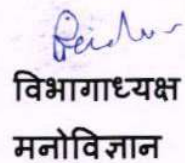 विभागाध्यक्ष
मनोविज्ञान